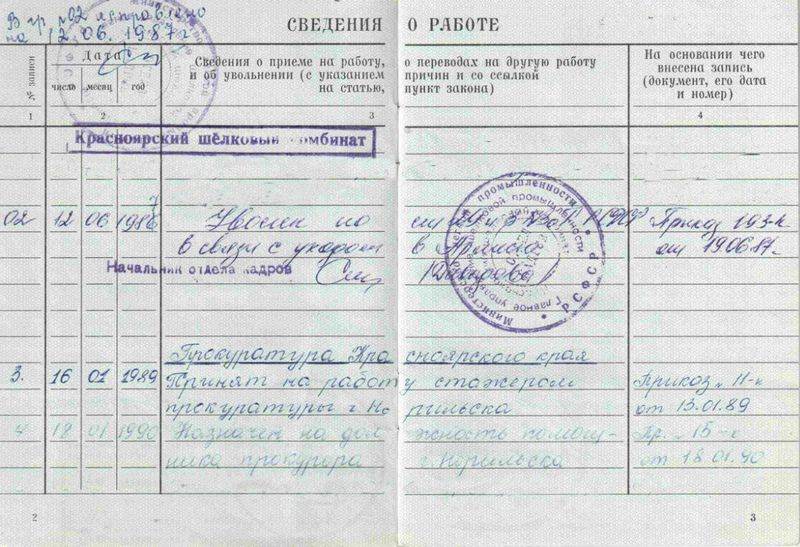 В гр. №02 исправлено
на 12.06.1987г
СВЕДЕНИЯ О РАБОТЕ
№ записи
Дата
число месяц год
Сведения о приеме на работу, о переводах на другую работу
и об увольнении (с указанием причин и со ссылкой
на статью, пункт закона)
На основании чего
внесена запись
(документ, его дата
и номер)
1 2 3 4
Красноярский шёлковый комбинат
7
02 12 06 1986 Уволен по Приказ 193-к
в связи с уходом в Армию от 19.06.87г.
Начальник отдела кадров
промышленности
РСФСР
Главное управление
Прокуратура Красноярского края
3. 16 01 1989 Принят на работу стажером Приказ 11-к
прокуратуры г. Норильска от 13.01.89
4 18 01 1990 Назначен на должность помощ- Пр. 15-к
ника прокурора г. Норильска от 18.01.90
2 3